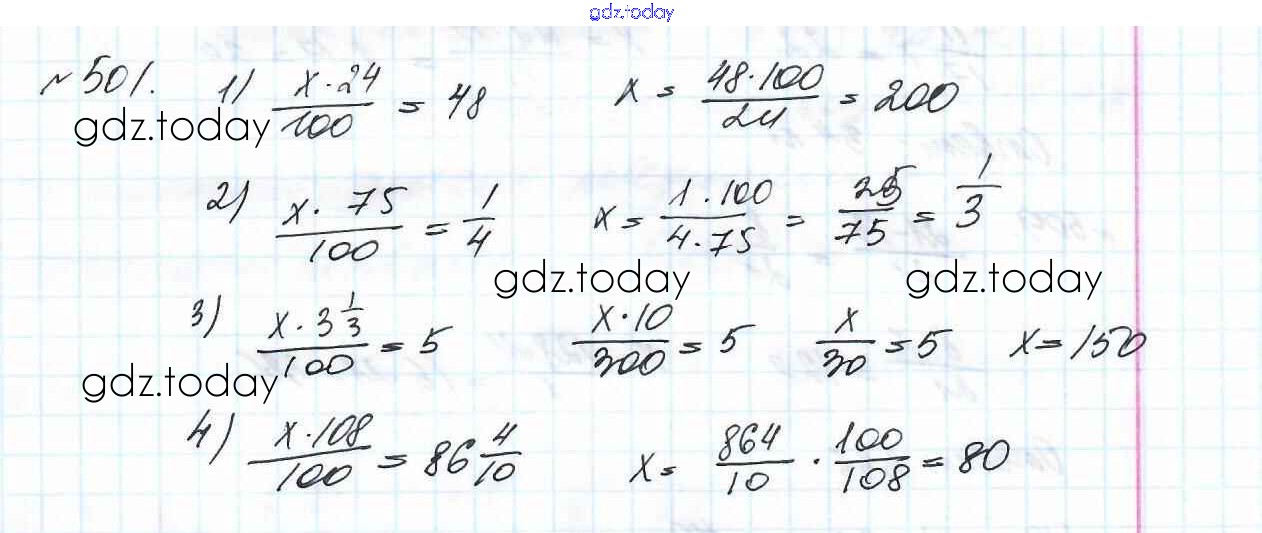 gdz.today
№501. 1) x·24/100 = 48 x = 48·100/24 = 200
gdz.today
2) x·75/100 = 1/4 x = 1·100/4·75 = 25/75 = 1/3
gdz.today gdz.today
3) x·3 1/3/100 = 5 x·10/300 = 5 x/30 = 5 x = 150
gdz.today
4) x·108/100 = 86 4/10 x = 864/10 · 100/108 = 80